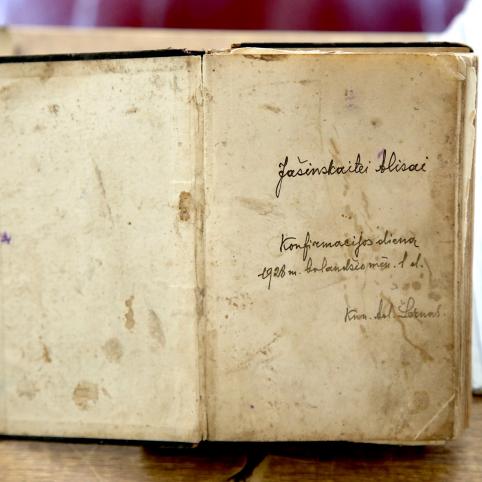 Jašinskaitei Alisai
Konfirmacijos diena
1928 m. balandžio mėn. 1 d.
Kun. Ad. Šernas.